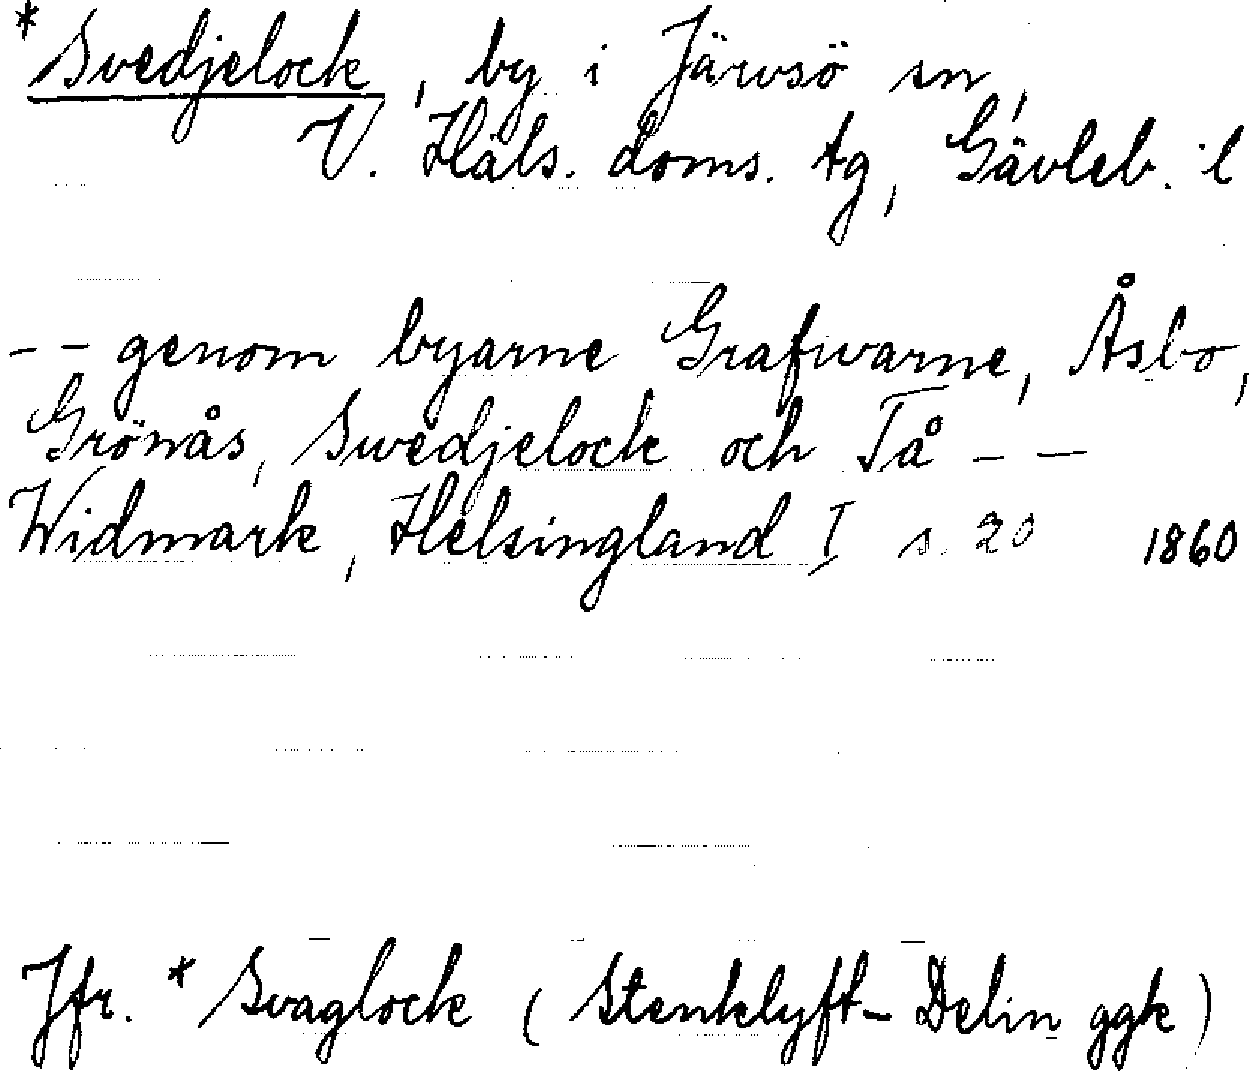 * Svedjelock, by i Järvsö sn,
V. Häls. doms. tg, Gävleb. l
-- genom byarne Grafwarne, Åsbo,
Grönås, Swedjelock och Tå - -
Widmark, Helsingland I s. 20 1860
Jfr. * Svaglock (Stenklyft- Delin ggk)